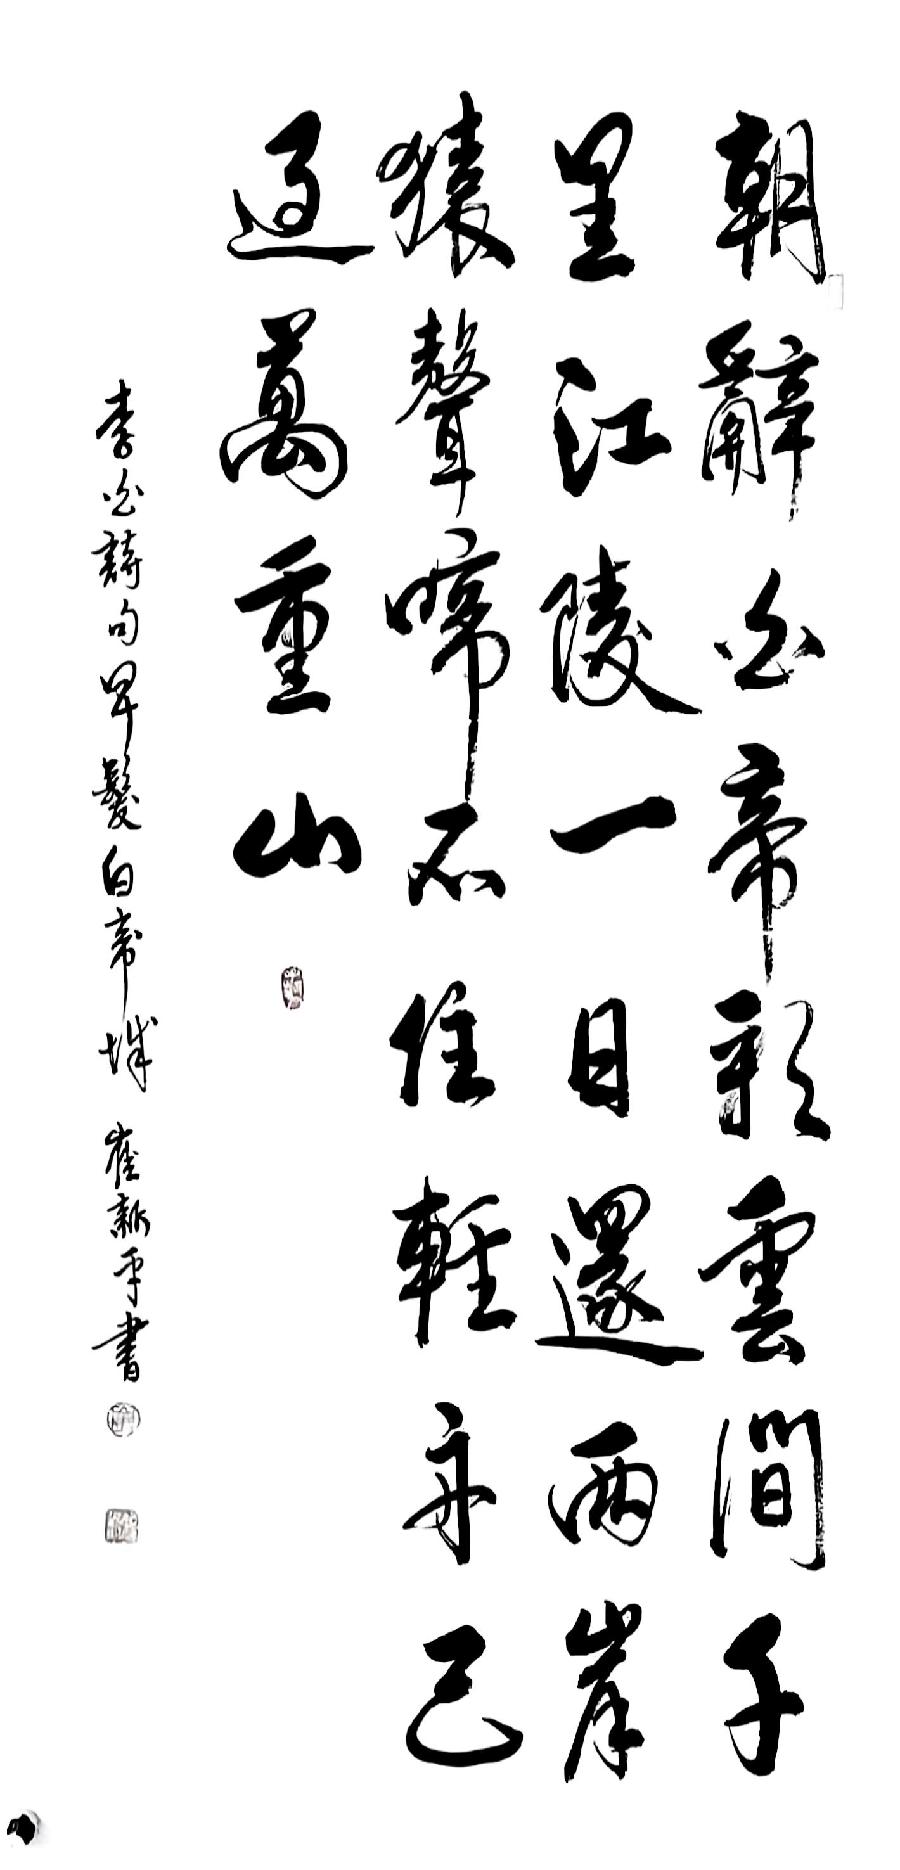 朝辭白帝彩雲間千
里江陵一日還兩岸
猿聲啼不住輕舟已
過萬重山
李白詩句早髮白帝城 崔新平書